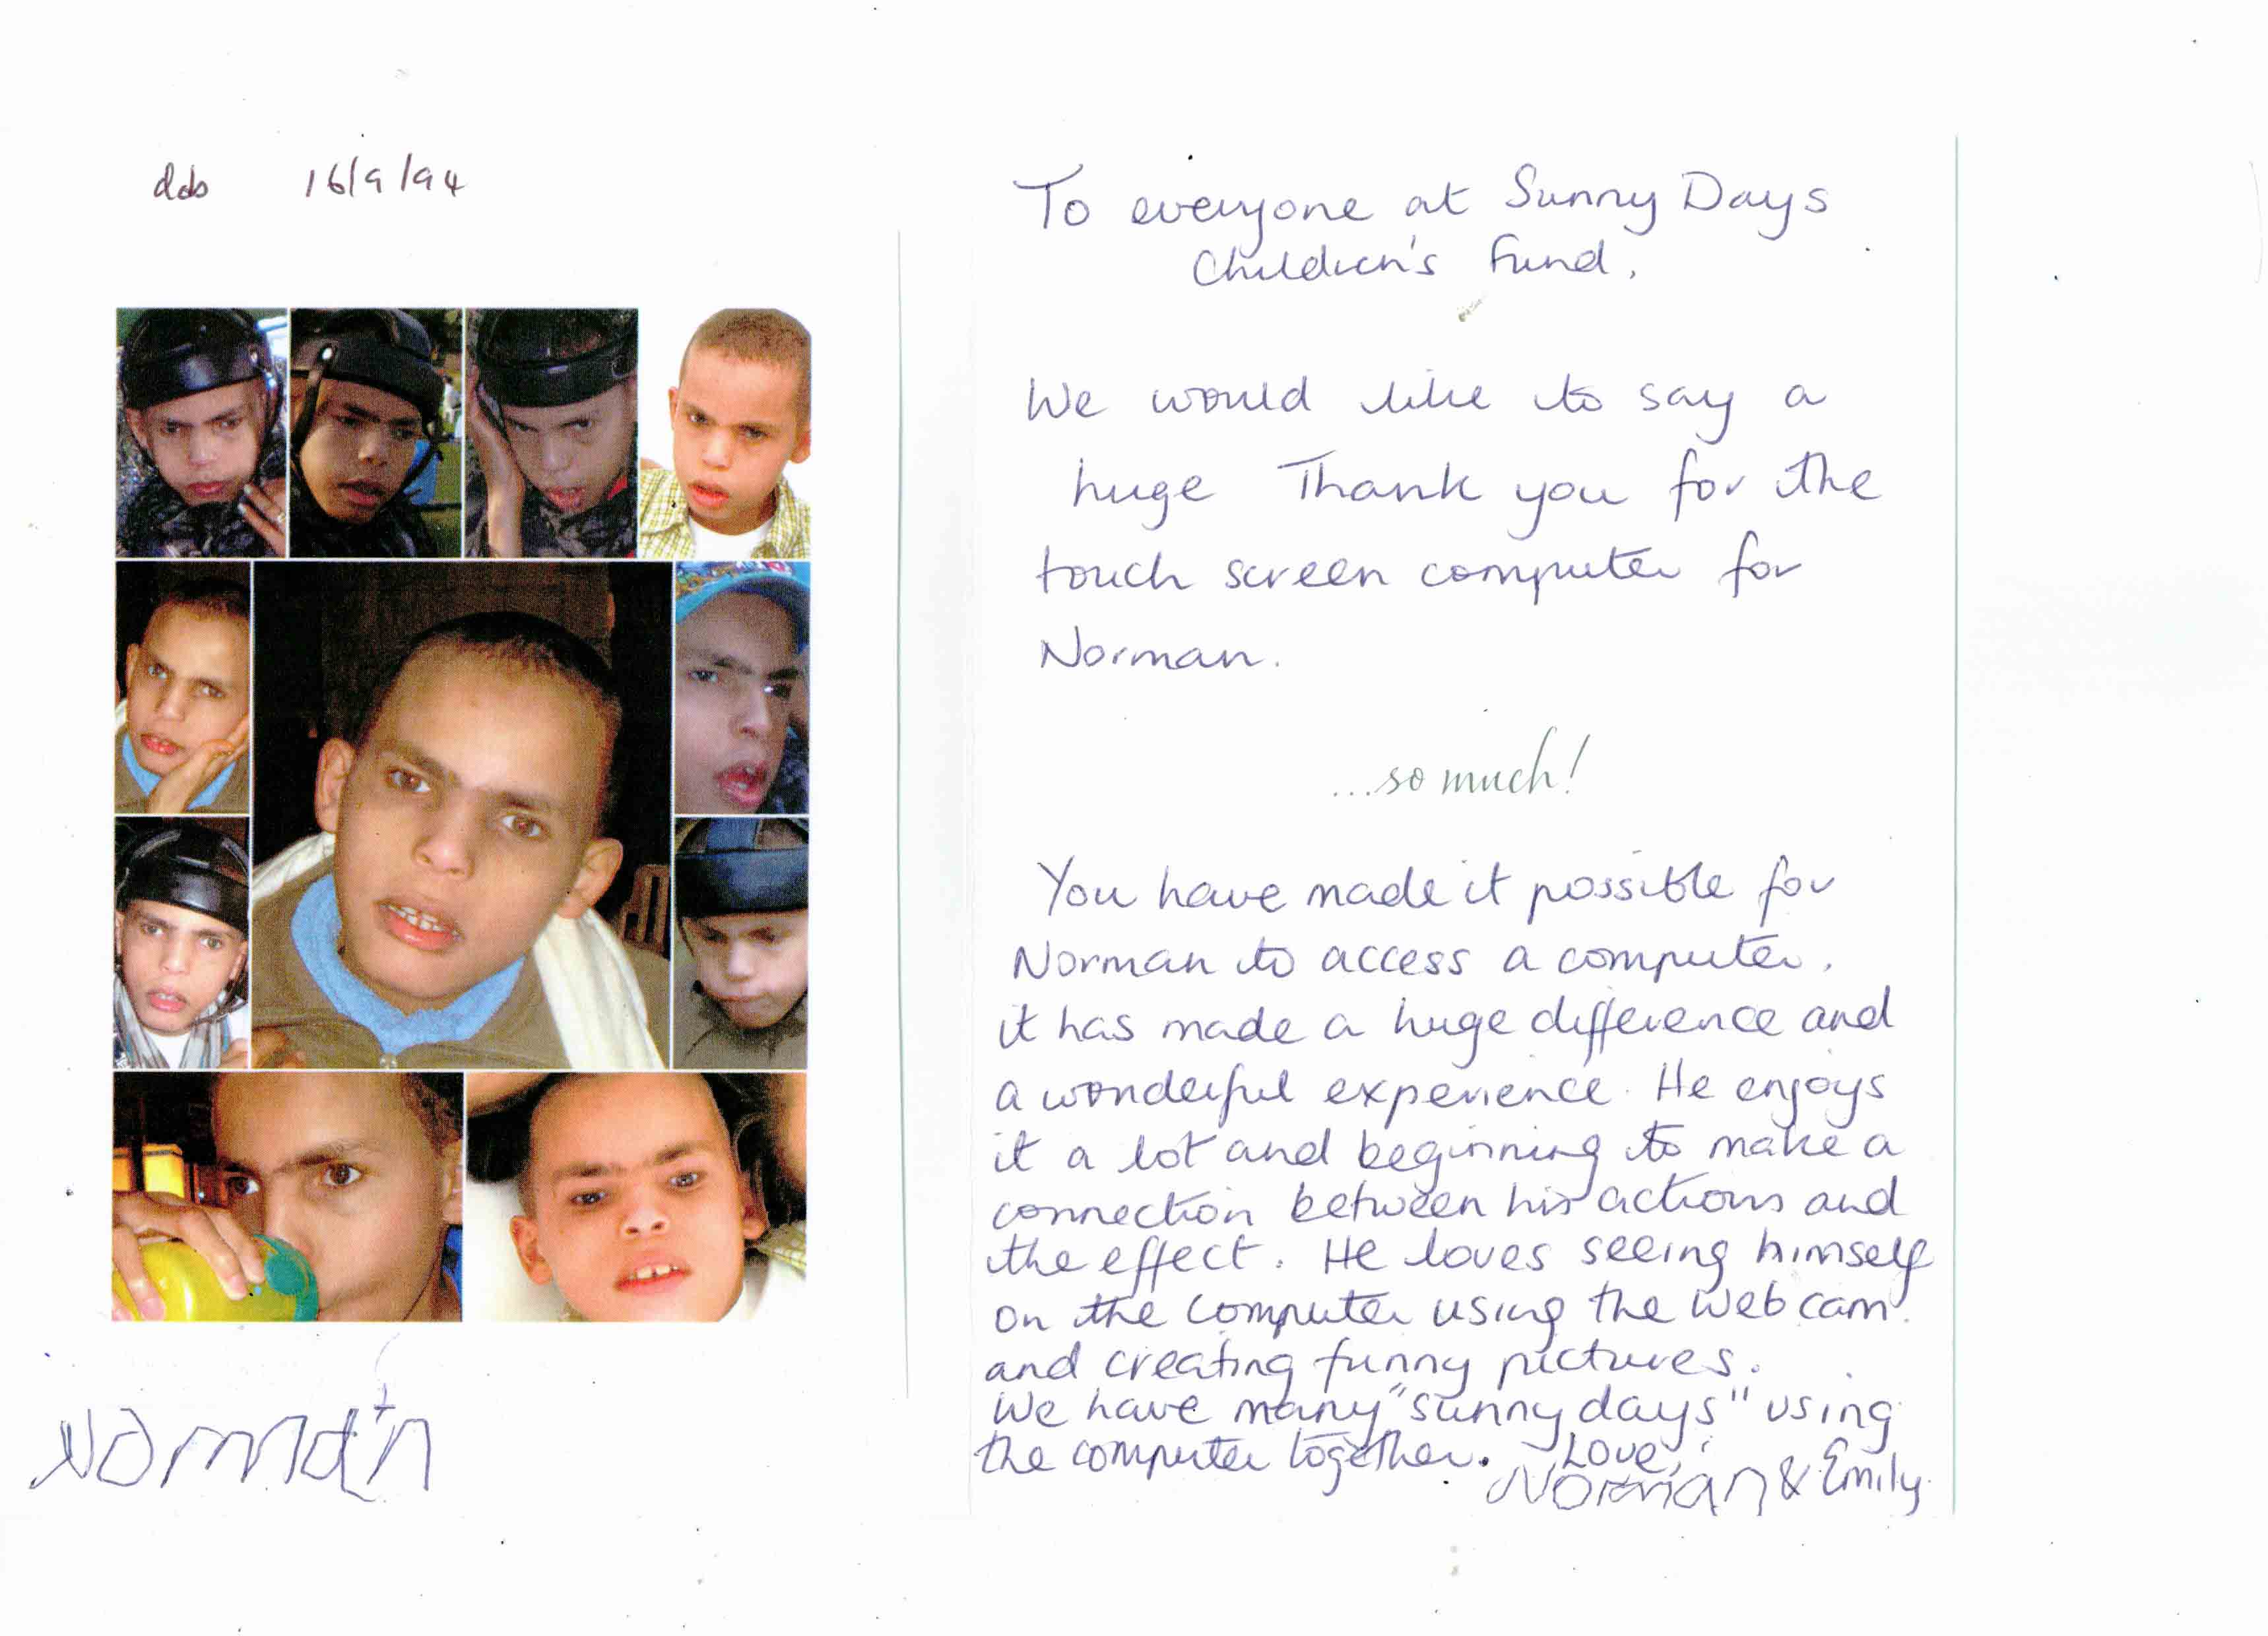 dob 16/9/94
Norman
To everyone at Sunny Days
Children's Fund,
We would like to say a
huge Thank you for the
touch screen computer for
Norman.
...so much!
You have made it possible for
Norman to access a computer,
it has made a huge difference and
a wonderful experience. He enjoys
it a lot and beginning to make a
connection between his actions and
the effect. He loves seeing himself
on the computer using the web cam.
and creating funny pictures.
We have many "sunny days" using
the computer together. Love,
Norman & Emily